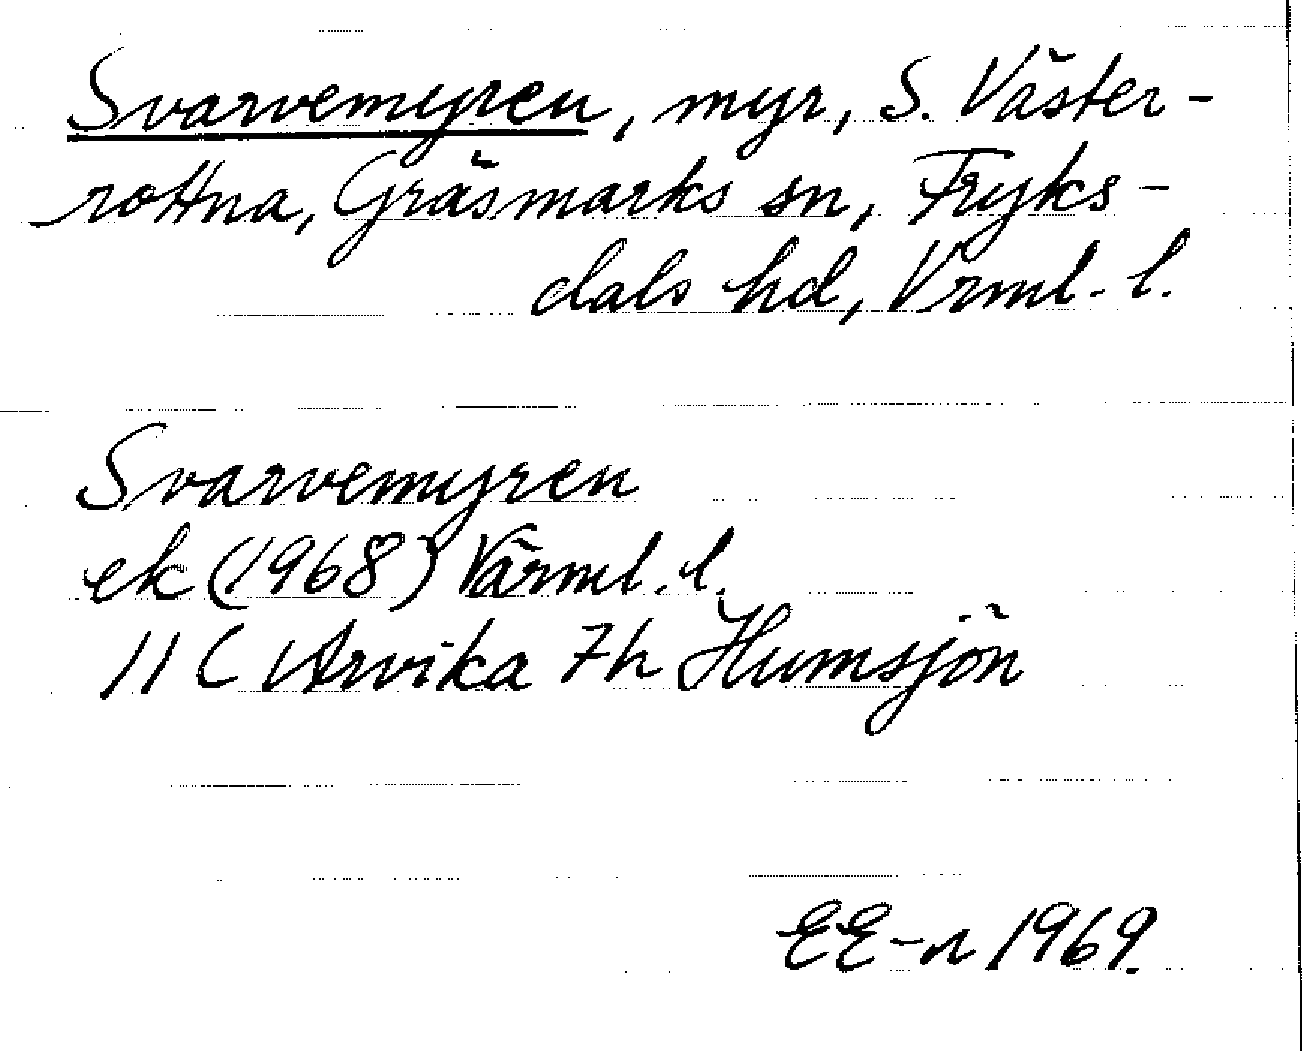 Svarvemyren, myr, S. Väster-
rottna, Gräsmarks sn, Fryks-
dals hd, Vrml. l.
Svarvemyren
ek (1968) Värml. l.
11 C Arvika 7h Humsjön
EE-n 1969.